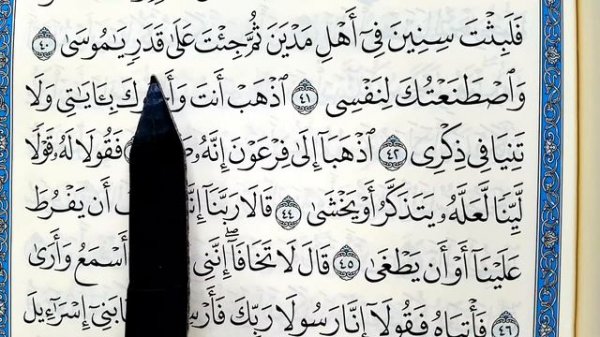 فَلَبِثْتَ سِنِينَ فِىٓ أَهْلِ مَدْيَنَ ثُمَّ جِئْتَ عَلَىٰ قَدَرٍ يَـٰمُوسَىٰ ٤٠
وَٱصْطَنَعْتُكَ لِنَفْسِى ٤١ ٱذْهَبْ أَنتَ بِـَٔايَـٰتِى وَلَا
تَنِيَا فِى ذِكْرِى ٤٢ ٱذْهَبَآ إِلَىٰ فِرْعَوْنَ إِنَّهُۥ فَقُولَا لَهُۥ قَوْلًا
لَّيِّنًا لَّعَلَّهُۥ يَتَذَكَّرُ أَوْ يَخْشَىٰ ٤٤ قَالَا رَبَّنَآ أَن يَفْرُطَ
عَلَيْنَآ أَوْ أَن يَطْغَىٰ ٤٥ قَالَ لَا تَخَافَآ إِنَّنِى أَسْمَعُ وَأَرَىٰ
٤٦ فَأْتِيَاهُ فَقُولَآ إِنَّا رَسُولَا رَبِّكَ بَنِىٓ إِسْرَٰٓءِيلَ